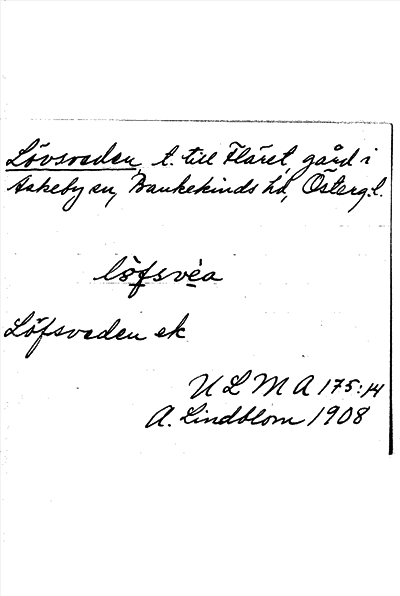 Lövsveden, t. till Fläret, gård i
Askeby sn, Bankekinds hd, Östergl.
löfsvèa
Löfsveden ek
ULMA 175:14
A. Lindblom 1908